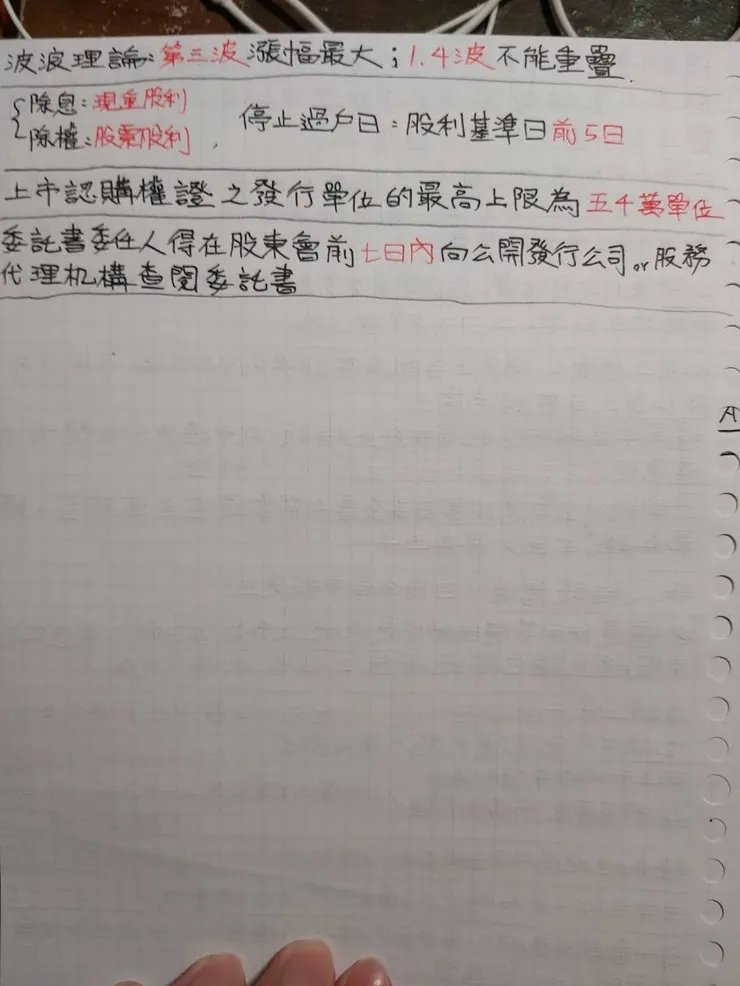 波浪理論:第三波漲幅最大;1.4波不能重疊.
除息:現金股利
除權:股票股利 , 停止過戶日:股利基準日前5日
上市認購權證之發行單位的最高上限為五千萬單位
委託書委任人得在股東會前七日內向公開發行公司or股務
代理机構查閱委託書